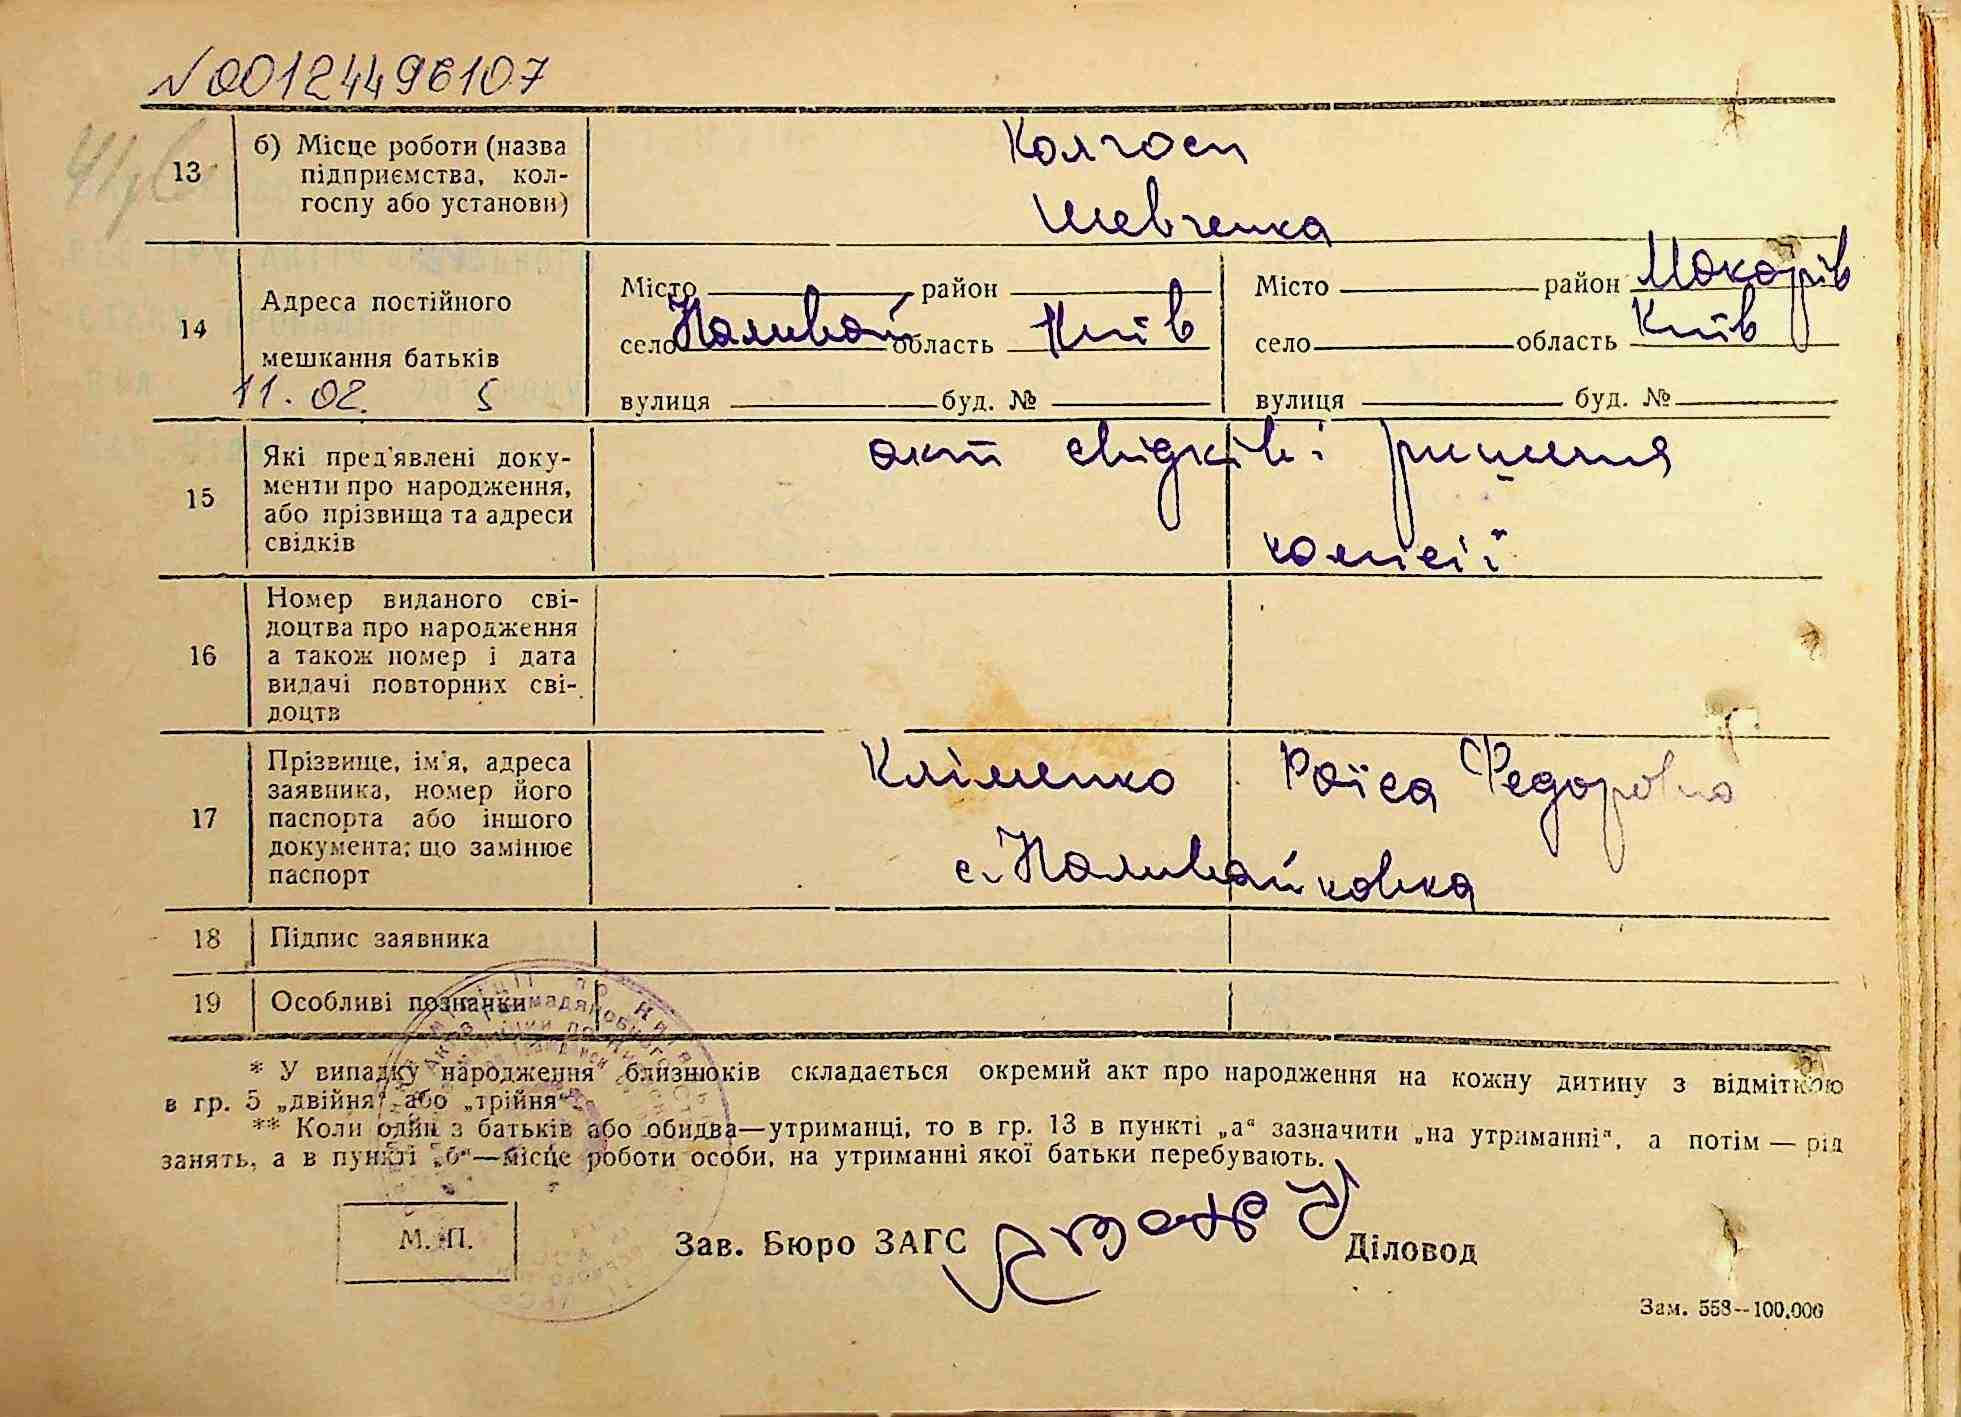 №00124496107
13 б) Місце роботи (назва підприємства, кол-
госпу або установи)
Колгосп
Шевченка
14 Адреса постійного
мешкання батьків
11. 02. 5
Місто район
село Наливай область Київ
вулиця буд. №
Місто район Макарів
село область Київ
вулиця буд. №
15 Які пред'явлені доку-
менти про народження,
або прізвища та адреси
свідків
акт свідків і рішення
комісії
16 Номер виданого сві-
доцтва про народження
а також номер і дата
видачі повторних сві-
доцтв
17 Прізвище, ім'я, адреса
заявника, номер його
паспорта або іншого
документа; що замінює
паспорт
Кліменко Раїса Федоровна
с. Наливайковка
18 Підпис заявника
19 Особливі позначки
* У випадку народження близнюків складається окремий акт про народження на кожну дитину з відміткою
в гр. 5 „двійня" або „трійня".
** Коли один з батьків або обидва—утриманці, то в гр. 13 в пункті „а" зазначити „на утриманні", а потім — рід
занять, а в пункті „б"—місце роботи особи, на утриманні якої батьки перебувають.
М. П.
Зав. Бюро ЗАГС
Діловод
Зам. 558—100.000